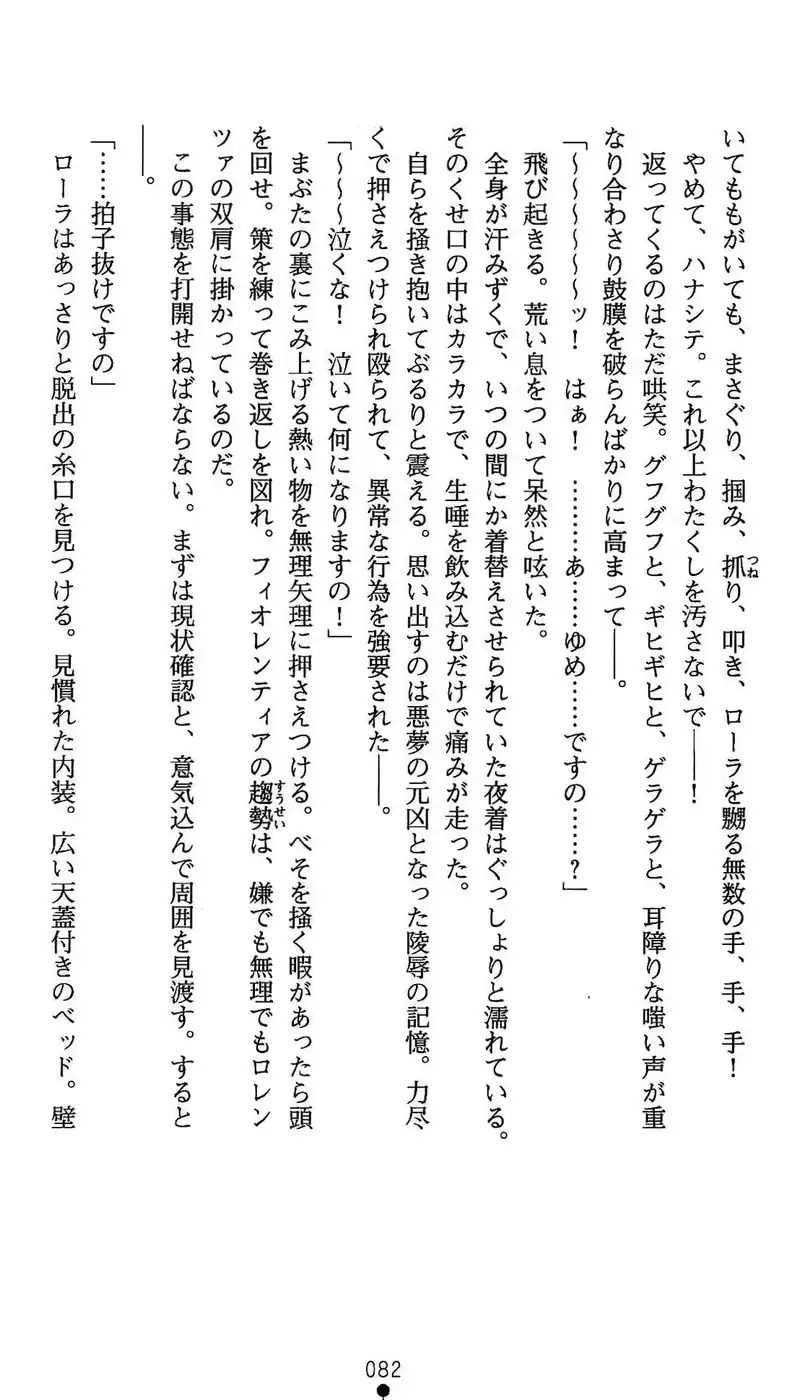 いてももがいても、まさぐり、掴み、抓り、叩き、ローラを嬲る無数の手、手、手！
やめて、ハナシテ。これ以上わたくしを汚さないで――！
返ってくるのはただ哄笑。グフグフと、ギヒギヒと、ゲラゲラと、耳障りな嗤い声が重
なり合わさり鼓膜を破らんばかりに高まって――。
「～～～～～～ッ！　はぁ！　………あ……ゆめ……ですの……？」
飛び起きる。荒い息をついて呆然と呟いた。
全身が汗みずくで、いつの間にか着替えさせられていた夜着はぐっしょりと濡れている。
そのくせ口の中はカラカラで、生唾を飲み込むだけで痛みが走った。
自らを掻き抱いてぶるりと震える。思い出すのは悪夢の元凶となった陵辱の記憶。力尽
くで押さえつけられ殴られて、異常な行為を強要された――。
「～～～泣くな！　泣いて何になりますの！」
まぶたの裏にこみ上げる熱い物を無理矢理に押さえつける。べそを掻く暇があったら頭
を回せ。策を練って巻き返しを図れ。フィオレンティアの趨勢は、嫌でも無理でもロレン
ツァの双肩に掛かっているのだ。
この事態を打開せねばならない。まずは現状確認と、意気込んで周囲を見渡す。すると
――。
「……拍子抜けですの」
ローラはあっさりと脱出の糸口を見つける。見慣れた内装。広い天蓋付きのベッド。壁
つね
すうせい
082